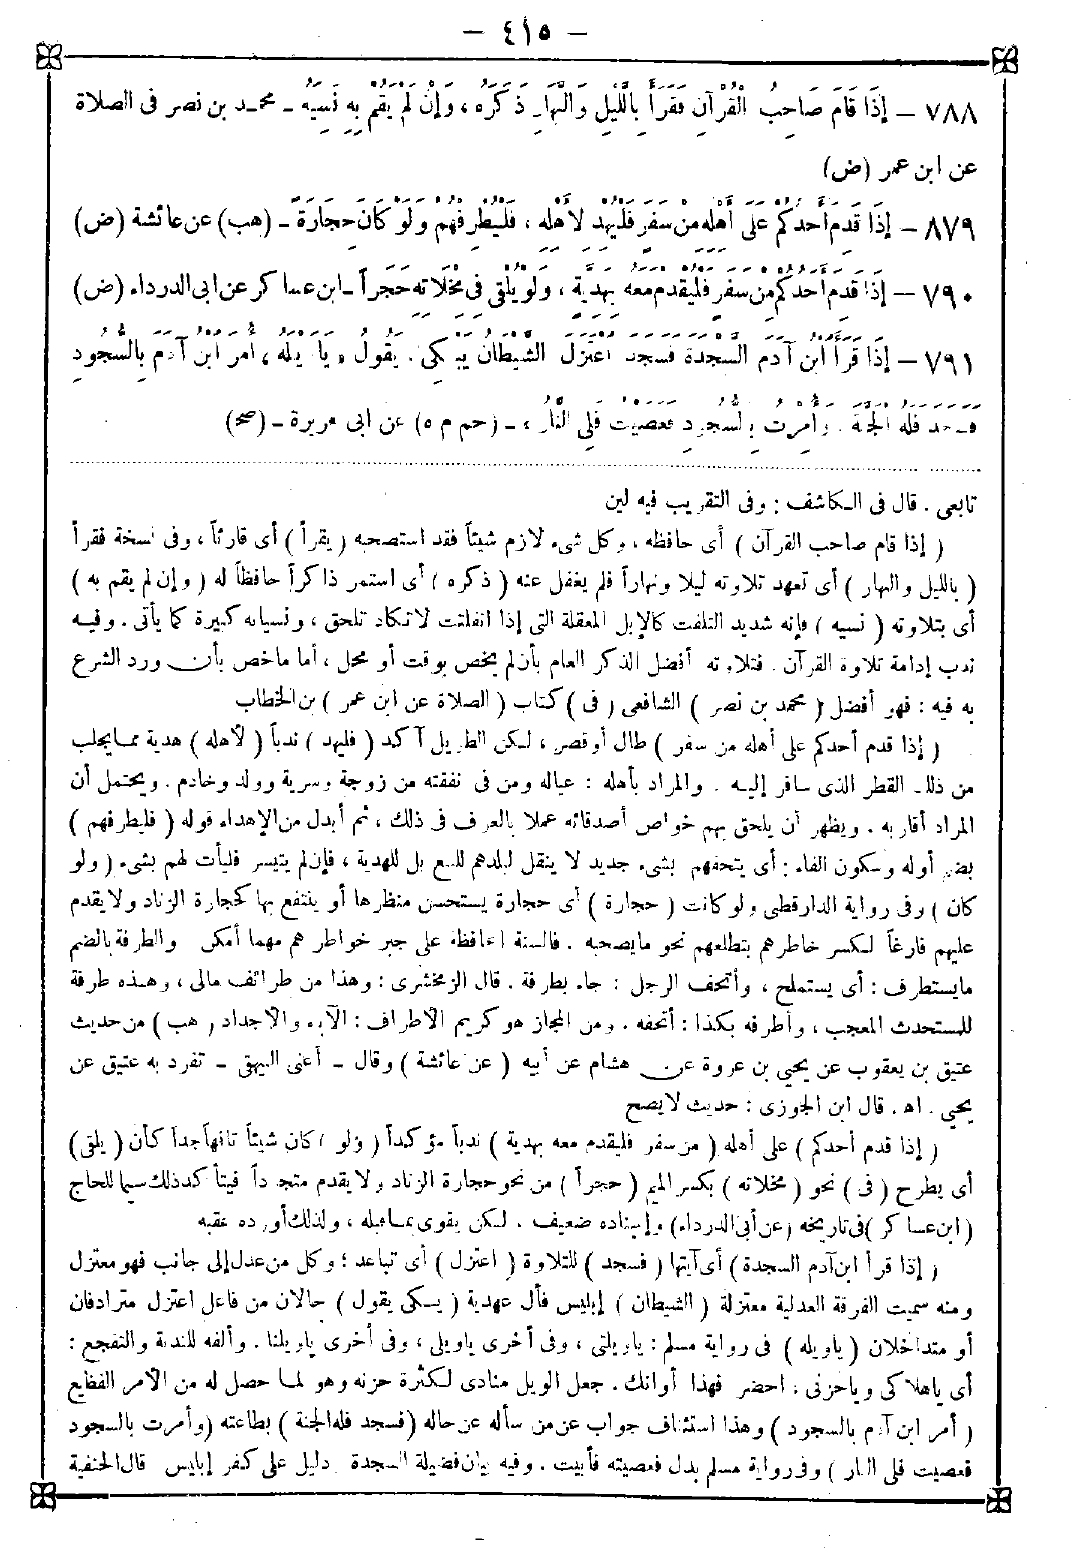 — ٤١٥ —
٧٨٨ – إِذَا قَامَ صَاحِبُ الْقُرْآنِ فَقَرَأَ بِاللَّيْلِ وَالنَّهَارِ ذَكَرَهُ ، وَإِنْ لَمْ يَقُمْ بِهِ نَسِيَهُ ـ محمد بن نصر فى الصلاة
عن ابن عمر (ض)
٨٧٩ – إِذَا قَدِمَ أَحَدُكُمْ عَلَى أَهْلِهِ مِنْ سَفَرٍ فَلْيُهْدِ لأَهْلِهِ ، فَلْيُطْرِفْهُمْ وَلَوْ كَانَ حِجَارَةً ـ (هب) عن عائشة (ض)
٧٩٠ – إِذَا قَدِمَ أَحَدُكُمْ مِنْ سَفَرٍ فَلْيَقْدَمْ مَعَهُ بِهَدِيَّةٍ ، وَلَوْ يُلْقِى فِى مِخْلَاتِهِ حَجَرًا ـ ابن عساكر عن ابى الدرداء (ض)
٧٩١ – إِذَا قَرَأَ ابْنُ آدَمَ السَّجْدَةَ فَسَجَدَ اعْتَزَلَ الشَّيْطَانُ يَبْكِى. يَقُولُ : يَا وَيْلَهُ ، أُمِرَ ابْنُ آدَمَ بِالسُّجُودِ
فَسَجَدَ فَلَهُ الْجَنَّةُ . وَأُمِرْتُ بِالسُّجُودِ فَعَصَيْتُ فَلِىَ النَّارُ ، ـ (حم م ه) عن ابى هريرة ـ (صح)
تابعى . قال فى الكاشف : وفى التقريب فيه لين
( إذا قام صاحب القرآن ) أى حافظه ، وكل شىء لازم شيئاً فقد استصحبه ( يقرأ ) أى قارئاً ، وفى نسخة فقرأ
( بالليل والنهار ) أى تعهد تلاوته ليلا ونهاراً فلم يغفل عنه ( ذكره ) أى استمر ذاكراً حافظاً له ( وإن لم يقم به )
أى بتلاوته ( نسيه ) فإنه شديد التلفت كالإبل المعقلة التى إذا انفلتت لا تكاد تلحق ، ونسيانه كبيرة كما يأتى . وفيه
ندب إدامة تلاوة القرآن . فتلاوته أفضل الذكر العام بأن لم يخص بوقت أو محل ، أما ما خص بأن ورد الشرع
به فيه : فهو أفضل ( محمد بن نصر ) الشافعى ( فى ) كتاب ( الصلاة عن ابن عمر ) بن الخطاب
( إذا قدم أحدكم على أهله من سفر ) طال أو قصر ، لكن الطويل آكد ( فليهد ) ندباً ( لأهله ) هدية مما يجلب
من ذلك القطر الذى سافر إليه . والمراد بأهله : عياله ومن فى نفقته من زوجة وسرية وولد وخادم . ويحتمل أن
المراد أقاربه . ويظهر أن يلحق بهم خواص أصدقائه عملا بالعرف فى ذلك ، ثم أبدل من الإهداء قوله ( فليطرفهم )
بضم أوله وسكون الفاء : أى يتحفهم بشىء جديد لا ينقل لبلدهم للبيع بل للهدية ، فإن لم يتيسر فليأت لهم بشىء ( ولو
كان ) وفى رواية الدارقطنى ولو كانت ( حجارة ) أى حجارة يستحسن منظرها أو ينتفع بها كحجارة الزناد ولا يقدم
عليهم فارغاً لكسر خاطرهم بتطلعهم نحو ما يصحبه . فالسنة المحافظة على جبر خواطرهم مهما أمكن والطرفة بالضم
ما يستطرف : أى يستملح ، وأتحف الرجل : جاء بطرفة . قال الزمخشرى : وهذا من طرائف مالى ، وهذه طرفة
للمستحدث المعجب ، وأطرفه بكذا : أتحفه . ومن المجاز هو كريم الأطراف : الآباء والأجداد ( هب ) من حديث
عتيق بن يعقوب عن يحيى بن عروة عن هشام عن أبيه ( عن عائشة ) وقال ـ أعنى البيهقى ـ تفرد به عتيق عن
يحيى . اه . قال ابن الجوزى : حديث لا يصح
( إذا قدم أحدكم ) على أهله ( من سفر فليقدم معه بهدية ) ندباً مؤكداً ( ولو ) كان شيئاً تافهاً جداً كأن ( يلقى )
أى يطرح ( فى ) نحو ( مخلاته ) بكسر الميم ( حجراً ) من نحو حجارة الزناد ولا يقدم متجرداً فيتأكد ذلك سيما للحاج
( ابن عساكر ) فى تاريخه ( عن أبى الدرداء ) وإسناده ضعيف . لكن يقوى بما قبله ، ولذلك أورده عقبه
( إذا قرأ ابن آدم السجدة ) أى آيتها ( فسجد ) للتلاوة ( اعتزل ) أى تباعد ؛ وكل من عدل إلى جانب فهو معتزل
ومنه سميت الفرقة العدلية معتزلة ( الشيطان ) إبليس فأل عهدية ( يبكى يقول ) حالان من فاعل اعتزل مترادفان
أو متداخلان ( ياويله ) فى رواية مسلم : ياويلتى ، وفى أخرى ياويلى ، وفى أخرى ياويلنا . وألفه للندبة والتفجع :
أى ياهلاكى وياحزنى ، احضر فهذا أوانك . جعل الويل منادى لكثرة حزنه وهو لما حصل له من الأمر الفظيع
( أمر ابن آدم بالسجود ) وهذا استئناف جواب عن من سأله عن حاله ( فسجد فله الجنة ) بطاعته ( وأمرت بالسجود
فعصيت فلى النار ) وفى رواية مسلم بدل فعصيته فأبيت . وفيه بيان فضيلة السجدة ودليل على كفر إبليس قال الحنفية